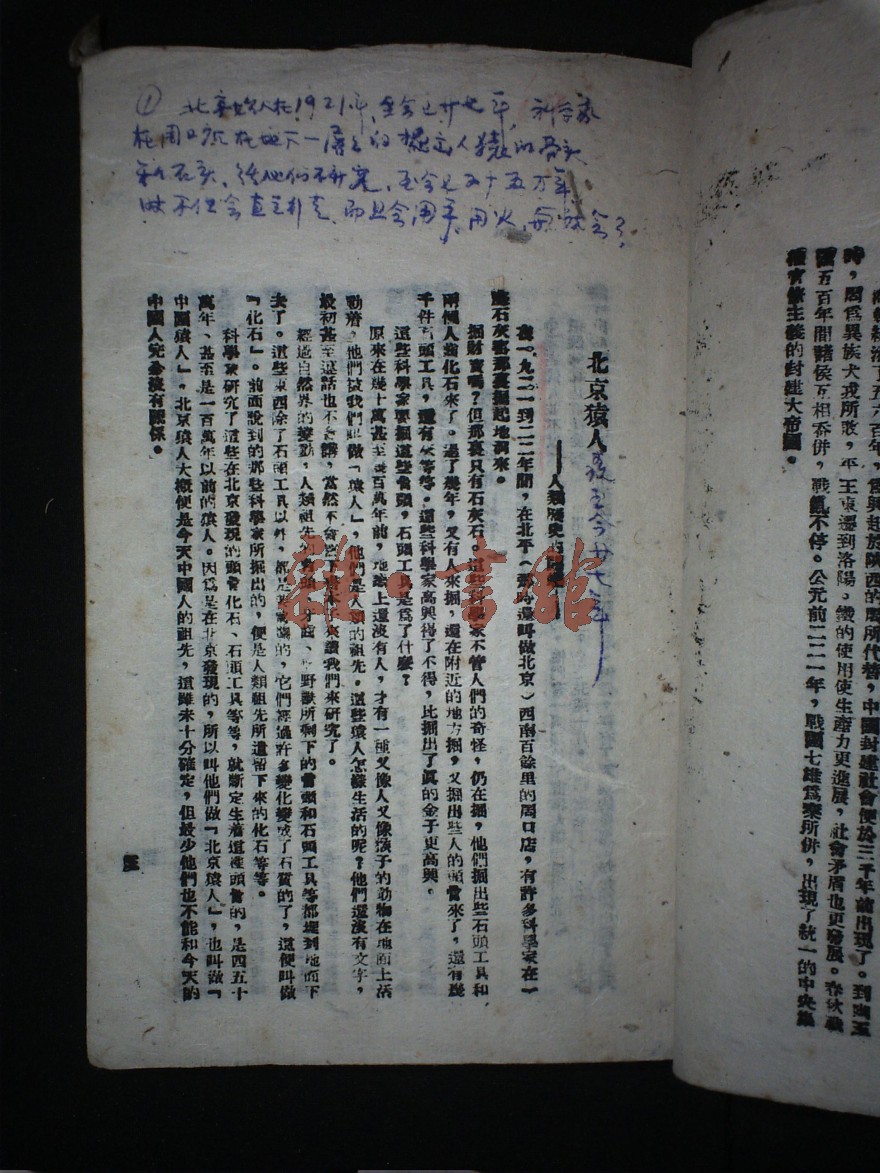 統治了五六百年，爲興起於陝西的周所代替，中國封建社會便於三千年前出現了。到幽王
時，周爲異族犬戎所敗，平王東遷到洛陽。鐵的使用使生產力更進展，社會矛盾也更發展。春秋戰
國五百年間諸侯互相吞併，戰亂不停。公元前二二一年，戰國七雄爲秦所併，出現了統一的中央集
權官僚主義的封建大帝國。
① 北京猿人在1921年，至今已廿七年，科学家
在周口店在地下一层之的 人猿的骨头
和石头， 他们 ，至今已五十五万年
不但会直立行走，而且会用手、用火，
北京猿人 至今廿七年
——人類歷史
在一九二一到二二年間，在北平（那時還叫做北京）西南百餘里的周口店，有許多科學家在一
座石灰窰那裏掘起地洞來。
掘財寶嗎？但那裏只有石灰石。這些科學家不管人們的奇怪，仍在掘，他們掘出些石頭工具和
兩個人齒化石來了。過了幾年，又有人來掘，還在附近的地方掘，又掘出些人的頭骨來了，還有幾
千件石頭工具，還有灰等等。這些科學家高興得了不得，比掘出了眞的金子更高興。
這些科學家要掘這些骨頭，石頭工具是爲了什麼？
原來在幾十萬甚至幾百萬年前，地球上還沒有人，才有一種又像人又像猿子的動物在地面上活
動着，他們被我們叫做「猿人」，他們是人類的祖先。這些猿人怎樣生活的呢？他們還沒有文字，
最初甚至連話也不會講，當然不會寫下書本子來讓我們來研究了。
經過自然界的變動，人類祖先的骨頭、牙齒、中野獸所剩下的骨頭和石頭工具等都埋到地面下
去了。這些東西除了石頭工具以外，都是 的，它們經過許多變化變成了石質的了，這便叫做
「化石」。前面說到的那些科學家所掘出的，便是人類祖先所遺留下來的化石等等。
科學家研究了這些在北京發現的頭骨化石、石頭工具等等，就斷定生着這種頭骨的，是四五十
萬年、甚至是一百萬年以前的猿人。因爲是在北京發現的，所以叫他們做『北京猿人』，也叫做『
中國猿人』。北京猿人大概便是今天中國人的祖先，這雖未十分確定，但最少他們也不能和今天的
中國人完全沒有關係。
雜·書館